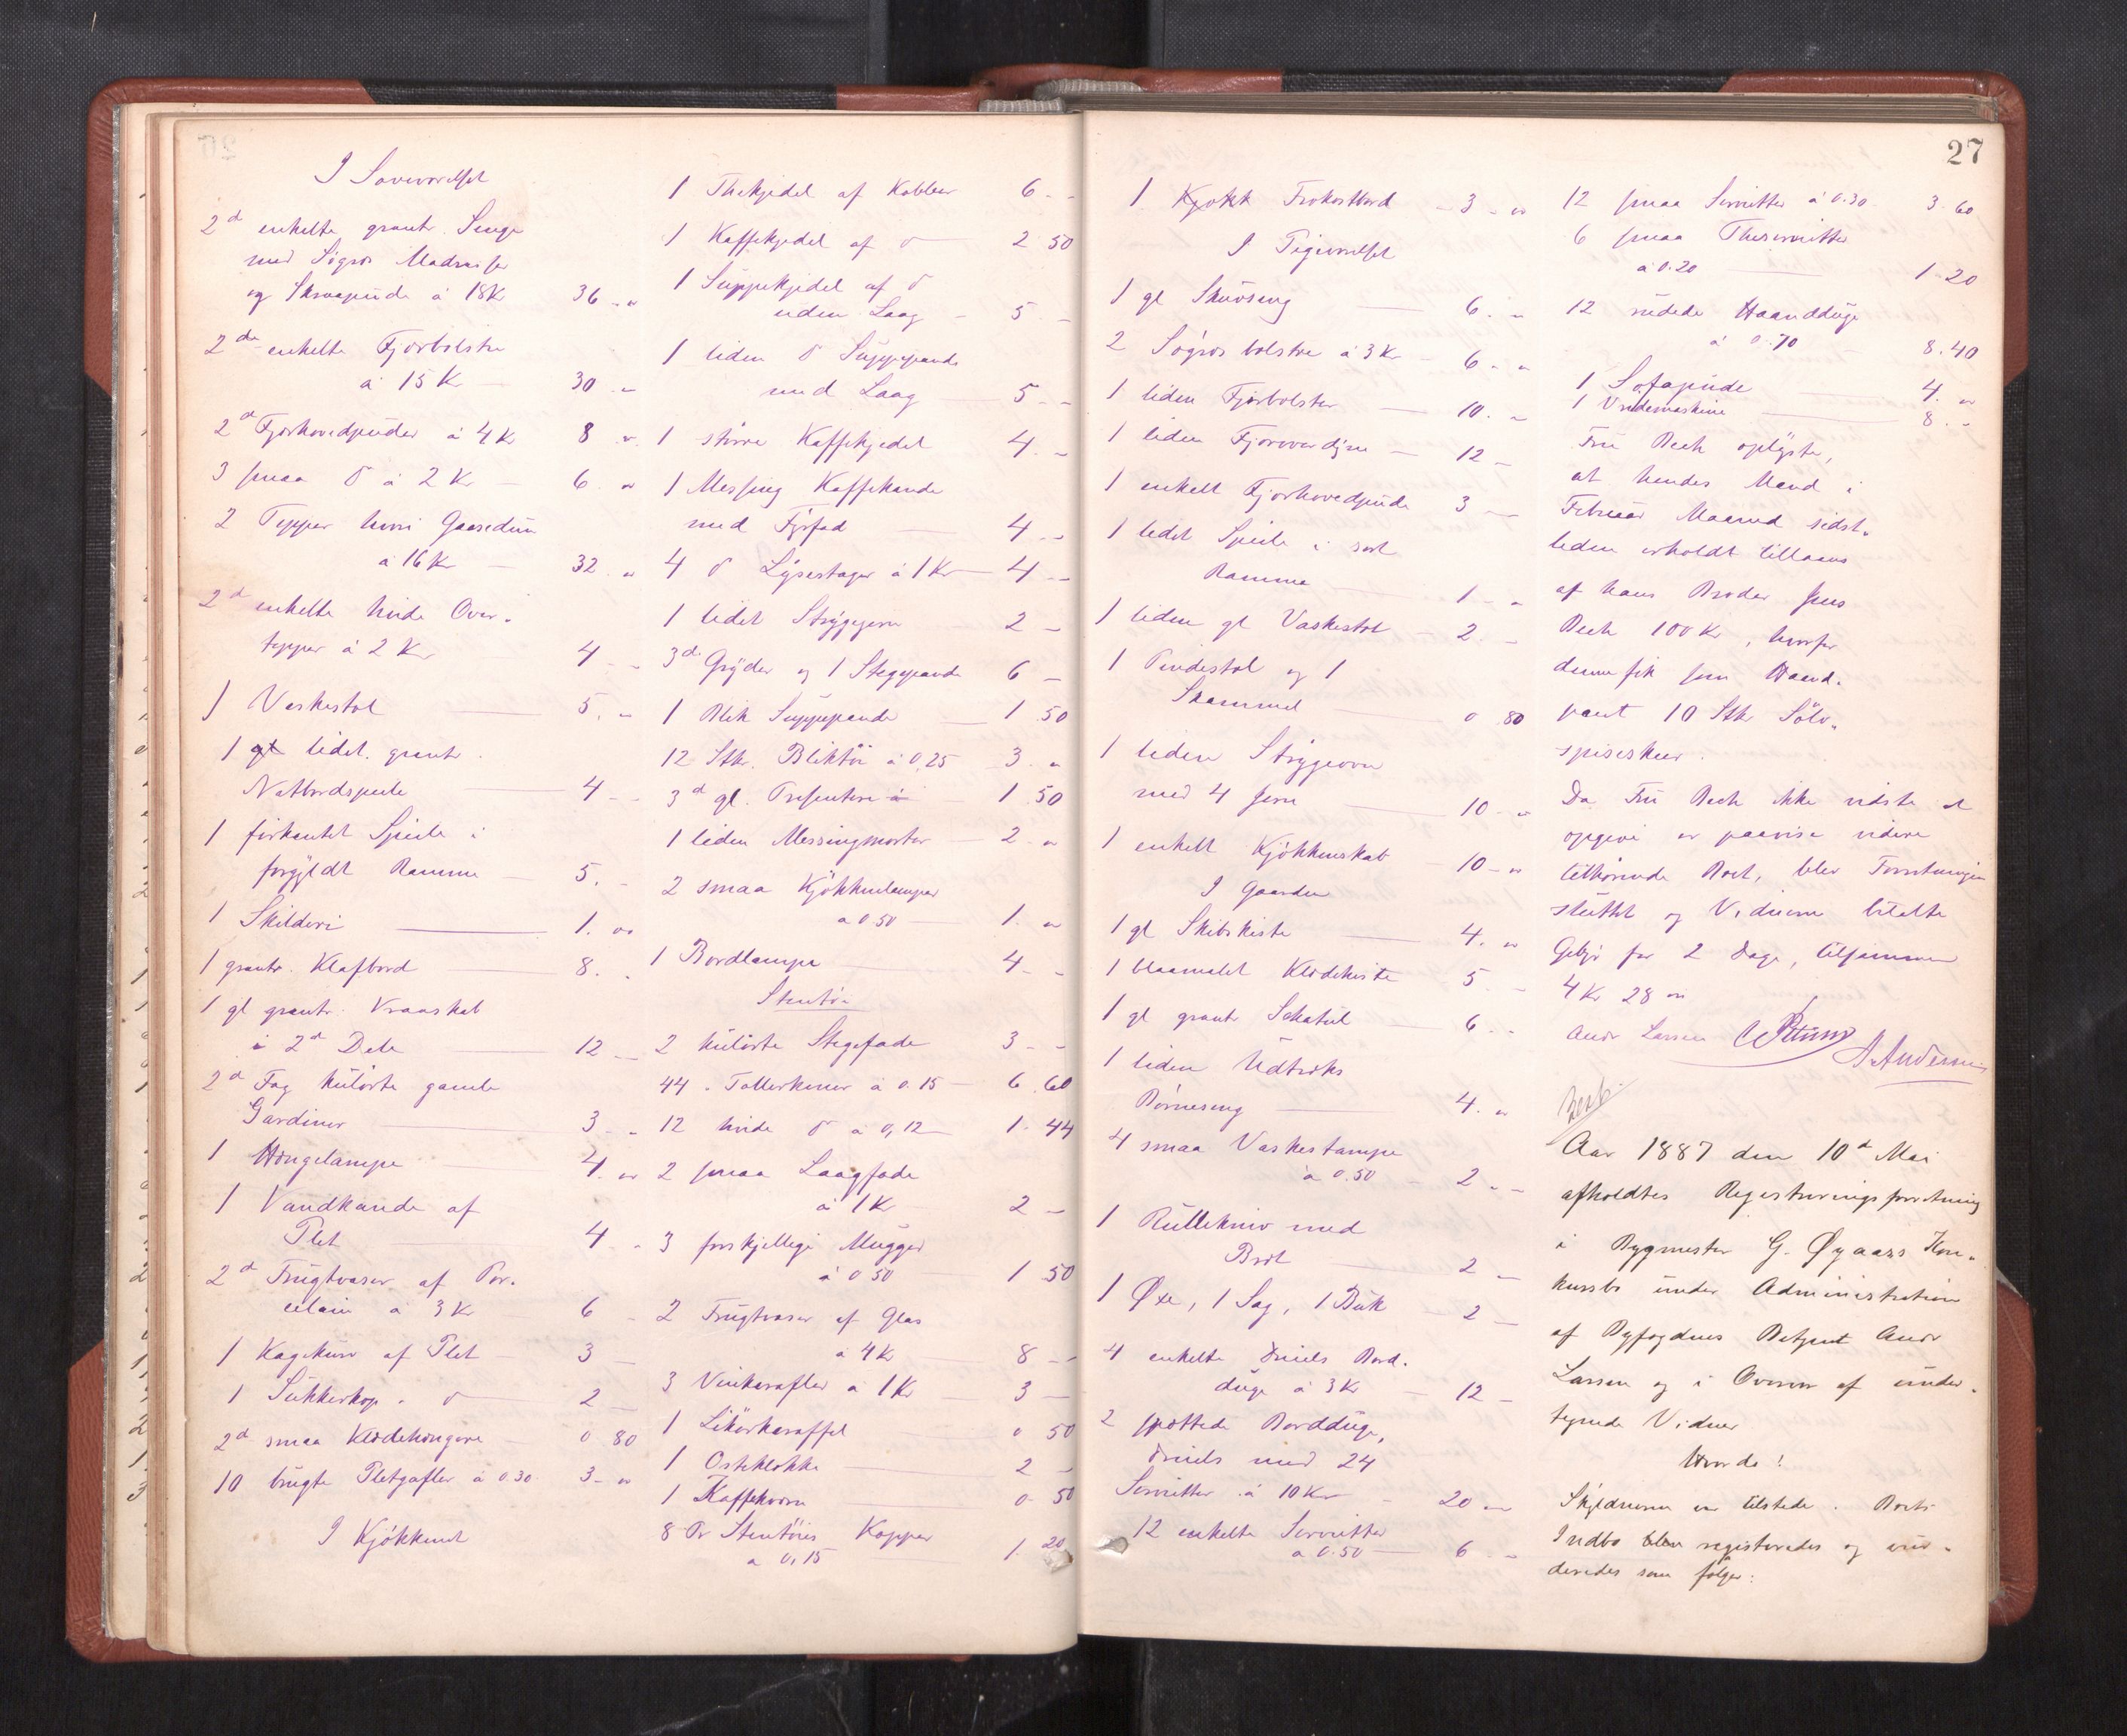 I Soveværelset
2d enkelte grantr Senge
med Søgræs Madrasser
og Skraapude á 18 Kr 36 - "
2de enkelte Fjærbolstre
á 15 Kr 30 - "
2d Fjærhovedpuder á 4 Kr 8 "
3 smaa do á 2 Kr 6 "
2 Tepper hvori Gaasedun
á 16 Kr 32 "
2d enkelte hvide Over-
tepper á 2 Kr 4 - -
1 Vaskestol 5. "
1 gl lidet grantr.
Natbordspeile 4 - -
1 firkantet Speile i
forgyldt Ramme 5. -
1 Skilderi 1. "
1 grantr. Klafbord 8. -
1 gl grantr. Vraaskab
i 2d Dele 12 -
2d Fag kulørte gamle
Gardiner 3 - -
1 Hængelampe 4. "
1 Vandkande af
Plet 4 -
2d Frugtvaser af Por-
celain á 3 Kr 6 -
1 Kagekurv af Plet 3 -
1 Sukkerkop - do 2 -
2d smaa Klædehængere 0 80
10 brugte Pletgafler á 0.30 3 - "
I Kjøkkenet
1 Thekjedel af Kobber 6 - -
1 Kaffekjedel af do 2 50
1 Suppekjedel af do
uden Laag 5 -
1 liden do Suppepande
med Laag 5 - -
1 større Kaffekjedel 4. -
1 Messing Kaffekande
med Fyrfad 4 - -
4 do Lysestager á 1 Kr 4 - -
1 lidet Strygejern 2 -
3de Gryder og 1 Stegepande 6 -
1 Blik Suppepande 1 50
12 Stkr. Bliktøi á 0,25 3 . "
3d gl. Presentere á 1 50
1 liden Messingmorter 2 - "
2 smaa Kjøkkenlamper
a 0 50 1. "
1 Bordlampe 4 - -
Stentøi
2 kulørte Stegefade 3 - -
44 - Tallerkener á 0.15 6 60
12 hvide do a 0,12 1. 44
2 smaa Laagfade
á 1 Kr 2 -
3 forskjellige Mugger
á 0 50 1 50
2 Frugtvaser af Glas
á 4 Kr 8 - -
3 Vinkarafler a 1 Kr 3 -
1 Likørkaraffel 0 50
1 Osteklokke 2 -
1 Kaffekværn 0 50
8 Pr Stentøis Kopper 1. 20
a 0,15
27
1 Kjøkk Frokostbord 3 - "
I Pigeværelset
1 gl Skuvseng 6. "
2 Søgræs bolstre á 3 Kr 6 - "
1 liden Fjærbolster 10. "
1 liden Fjæroverdyne 12 -
1 enkelt Fjærhovedpude 3 - -
1 lidet Speile i sort
Ramme 1 - "
1 liden gl Vaskestol 2. -
1 Pindestol og 1
Skammel 0 80
1 liden Strygeovn
med 4 Jern 10 - "
1 enkelt Kjøkkenskab 10 - "
I Gaarden
1 gl Skibskiste 4. "
1 blaamalet Klædekiste 5 - -
1 gl grantr Schatul 6 - -
1 liden Udtræks
Børneseng 4. "
4 smaa Vaskestampe
á 0.50 2 - -
1 Rullekniv med
Bræt 2 -
1 Øxe, 1 Sag, 1 Buk 2 -
4 enkelte dreiels Bord-
duge á 3 Kr 12 -
2 spættede Bordduge,
dreiels med 24
Servietter á 10 Kr 20 "
12 enkelte Servietter
a 0.50 6 - -
12 smaa Servietter á 0.30 3 60
6 smaa Theservietter
á 0.20 1 20
12 rudede Haandduge
á 0.70 8.40
1 Sofapude 4. "
1 Vridemaskine 8. -
Fru Bech oplyste,
at hendes Mand i
Februar Maaned sidst-
leden erholdt tillaans
af hans Broder Jens
Bech 100 Kr, hvorfor
denne fik som Haand-
pant 10 Stk Sølv-
spiseskeer.
Da Fru Bech ikke vidste at
opgive or paavise videre
tilhørende Boet, blev Forretningen
sluttet og Vidnerne betalte
Gebyr for 2 Dage, tilsammen
4 Kr 28 øre
Andr Larsen A Andersen
Aar 1887 den 10d Mai
afholdtes Registreringsforretning
i Bygmester G. Øgaards Kon-
kursbo under Administration
af Byfogdens Betjent Andr
Larsen og i Overvær af under-
tegnede Vidner
Hvorda!
Skyldneren var tilstede. Boets
Indbo blev registreredes og vur-
deredes som følger: